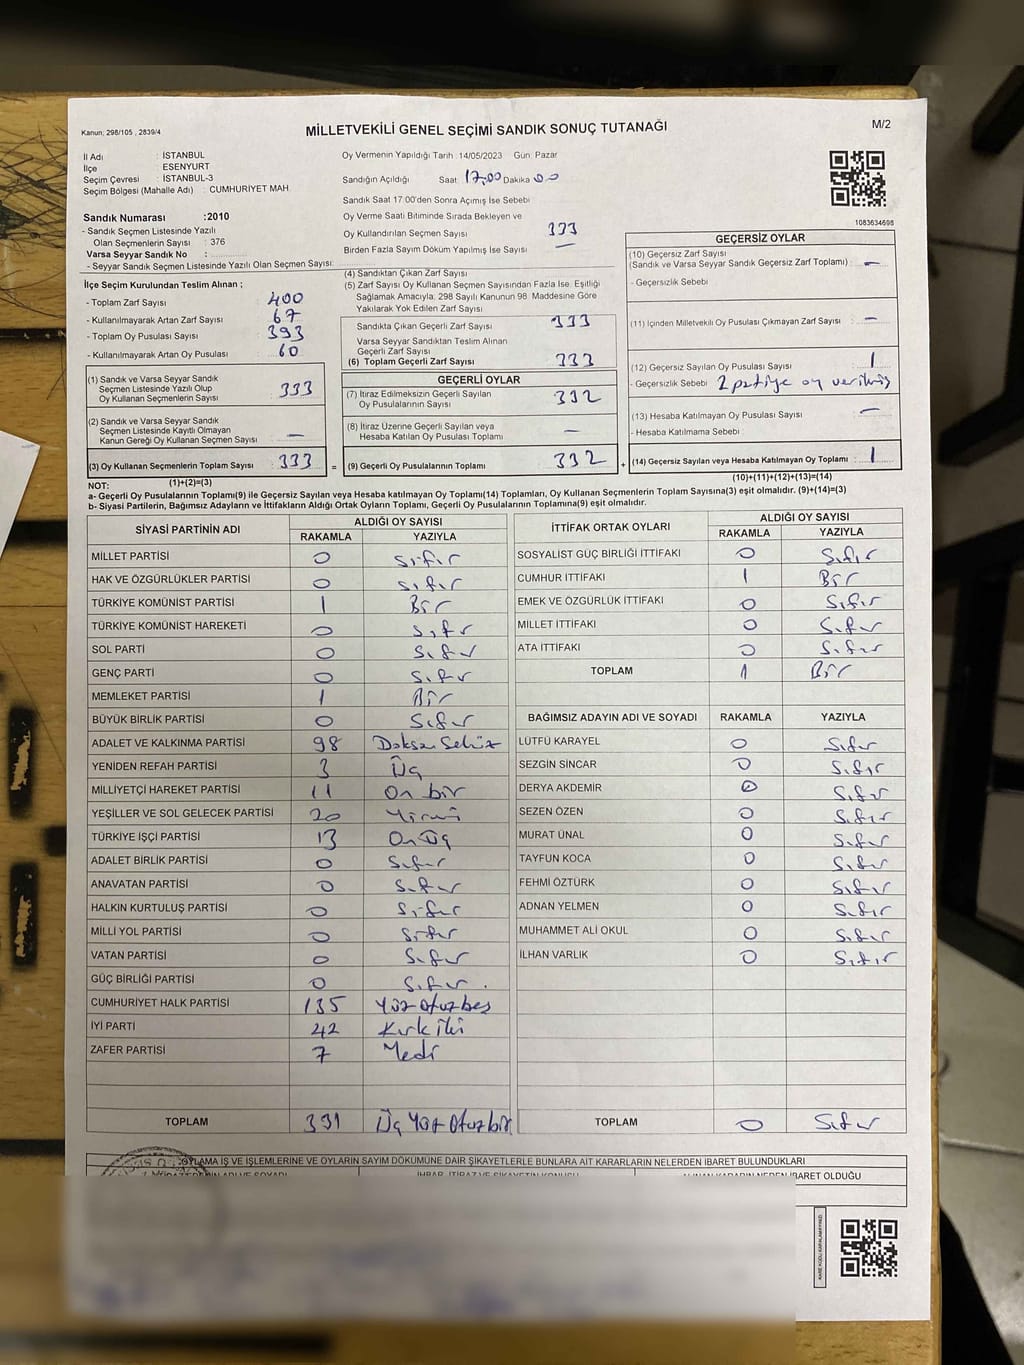 Kanun; 298/105 , 2839/4
MİLLETVEKİLİ GENEL SEÇİMİ SANDIK SONUÇ TUTANAĞI
M/2
İl Adı : İSTANBUL
İlçe : ESENYURT
Seçim Çevresi : İSTANBUL-3
Seçim Bölgesi (Mahalle Adı) : CUMHURİYET MAH.
Sandık Numarası :2010
- Sandık Seçmen Listesinde Yazılı
Olan Seçmenlerin Sayısı : 376
Varsa Seyyar Sandık No :
- Seyyar Sandık Seçmen Listesinde Yazılı Olan Seçmen Sayısı:
İlçe Seçim Kurulundan Teslim Alınan ;
- Toplam Zarf Sayısı : 400
- Kullanılmayarak Artan Zarf Sayısı : 67
- Toplam Oy Pusulası Sayısı : 393
- Kullanılmayarak Artan Oy Pusulası : 60
(1) Sandık ve Varsa Seyyar Sandık
Seçmen Listesinde Yazılı Olup
Oy Kullanan Seçmenlerin Sayısı : 333
(2) Sandık ve Varsa Seyyar Sandık
Seçmen Listesinde Kayıtlı Olmayan
Kanun Gereği Oy Kullanan Seçmen Sayısı : —
(3) Oy Kullanan Seçmenlerin Toplam Sayısı : 333 =
(1)+(2)=(3)
Oy Vermenin Yapıldığı Tarih : 14/05/2023 Gün: Pazar
Sandığın Açıldığı Saat: 17,00 Dakika 00
Sandık Saat 17:00'den Sonra Açımış İse Sebebi
Oy Verme Saati Bitiminde Sırada Bekleyen ve
Oy Kullandırılan Seçmen Sayısı 333
Birden Fazla Sayım Döküm Yapılmış İse Sayısı —
(4) Sandıktan Çıkan Zarf Sayısı
(5) Zarf Sayısı Oy Kullanan Seçmen Sayısından Fazla İse. Eşitliği
Sağlamak Amacıyla; 298 Sayılı Kanunun 98. Maddesine Göre
Yakılarak Yok Edilen Zarf Sayısı
Sandıkta Çıkan Geçerli Zarf Sayısı 333
Varsa Seyyar Sandıktan Teslim Alınan
Geçerli Zarf Sayısı
(6) Toplam Geçerli Zarf Sayısı 333
GEÇERLİ OYLAR
(7) İtiraz Edilmeksizin Geçerli Sayılan
Oy Pusulalarının Sayısı 332
(8) İtiraz Üzerine Geçerli Sayılan veya
Hesaba Katılan Oy Pusulası Toplamı —
(9) Geçerli Oy Pusulalarının Toplamı 332 +
1083634698
GEÇERSİZ OYLAR
(10) Geçersiz Zarf Sayısı
(Sandık ve Varsa Seyyar Sandık Geçersiz Zarf Toplamı) : —
- Geçersizlik Sebebi
(11) İçinden Milletvekili Oy Pusulası Çıkmayan Zarf Sayısı : —
(12) Geçersiz Sayılan Oy Pusulası Sayısı : 1
- Geçersizlik Sebebi : 2 partiye oy verilmiş
(13) Hesaba Katılmayan Oy Pusulası Sayısı : —
- Hesaba Katılmama Sebebi :
(14) Geçersiz Sayılan veya Hesaba Katılmayan Oy Toplamı : 1
(10)+(11)+(12)+(13)=(14)
NOT:
a- Geçerli Oy Pusulalarının Toplamı(9) ile Geçersiz Sayılan veya Hesaba katılmayan Oy Toplamı(14) Toplamları, Oy Kullanan Seçmenlerin Toplam Sayısına(3) eşit olmalıdır. (9)+(14)=(3)
b- Siyasi Partilerin, Bağımsız Adayların ve İttifakların Aldığı Ortak Oyların Toplamı, Geçerli Oy Pusulalarının Toplamına(9) eşit olmalıdır.
SİYASİ PARTİNİN ADI ALDIĞI OY SAYISI
RAKAMLA YAZIYLA
MİLLET PARTİSİ 0 Sıfır
HAK VE ÖZGÜRLÜKLER PARTİSİ 0 Sıfır
TÜRKİYE KOMÜNİST PARTİSİ 1 Bir
TÜRKİYE KOMÜNİST HAREKETİ 0 Sıfır
SOL PARTİ 0 Sıfır
GENÇ PARTİ 0 Sıfır
MEMLEKET PARTİSİ 1 Bir
BÜYÜK BİRLİK PARTİSİ 0 Sıfır
ADALET VE KALKINMA PARTİSİ 98 Doksan Sekiz
YENİDEN REFAH PARTİSİ 3 Üç
MİLLİYETÇİ HAREKET PARTİSİ 11 On bir
YEŞİLLER VE SOL GELECEK PARTİSİ 20 Yirmi
TÜRKİYE İŞÇİ PARTİSİ 13 On Üç
ADALET BİRLİK PARTİSİ 0 Sıfır
ANAVATAN PARTİSİ 0 Sıfır
HALKIN KURTULUŞ PARTİSİ 0 Sıfır
MİLLİ YOL PARTİSİ 0 Sıfır
VATAN PARTİSİ 0 Sıfır
GÜÇ BİRLİĞİ PARTİSİ 0 Sıfır
CUMHURİYET HALK PARTİSİ 135 Yüz Otuzbeş
İYİ PARTİ 42 Kırk iki
ZAFER PARTİSİ 7 Yedi
TOPLAM 331 Üç Yüz Otuzbir
İTTİFAK ORTAK OYLARI ALDIĞI OY SAYISI
RAKAMLA YAZIYLA
SOSYALİST GÜÇ BİRLİĞİ İTTİFAKI 0 Sıfır
CUMHUR İTTİFAKI 1 Bir
EMEK VE ÖZGÜRLÜK İTTİFAKI 0 Sıfır
MİLLET İTTİFAKI 0 Sıfır
ATA İTTİFAKI 0 Sıfır
TOPLAM 1 Bir
BAĞIMSIZ ADAYIN ADI VE SOYADI RAKAMLA YAZIYLA
LÜTFÜ KARAYEL 0 Sıfır
SEZGİN SİNCAR 0 Sıfır
DERYA AKDEMİR 0 Sıfır
SEZEN ÖZEN 0 Sıfır
MURAT ÜNAL 0 Sıfır
TAYFUN KOCA 0 Sıfır
FEHMİ ÖZTÜRK 0 Sıfır
ADNAN YELMEN 0 Sıfır
MUHAMMET ALİ OKUL 0 Sıfır
İLHAN VARLIK 0 Sıfır
TOPLAM 0 Sıfır
OYLAMA İŞ VE İŞLEMLERİNE VE OYLARIN SAYIM DÖKÜMÜNE DAİR ŞİKAYETLERLE BUNLARA AİT KARARLARIN NELERDEN İBARET BULUNDUKLARI
İBARET OLDUĞU